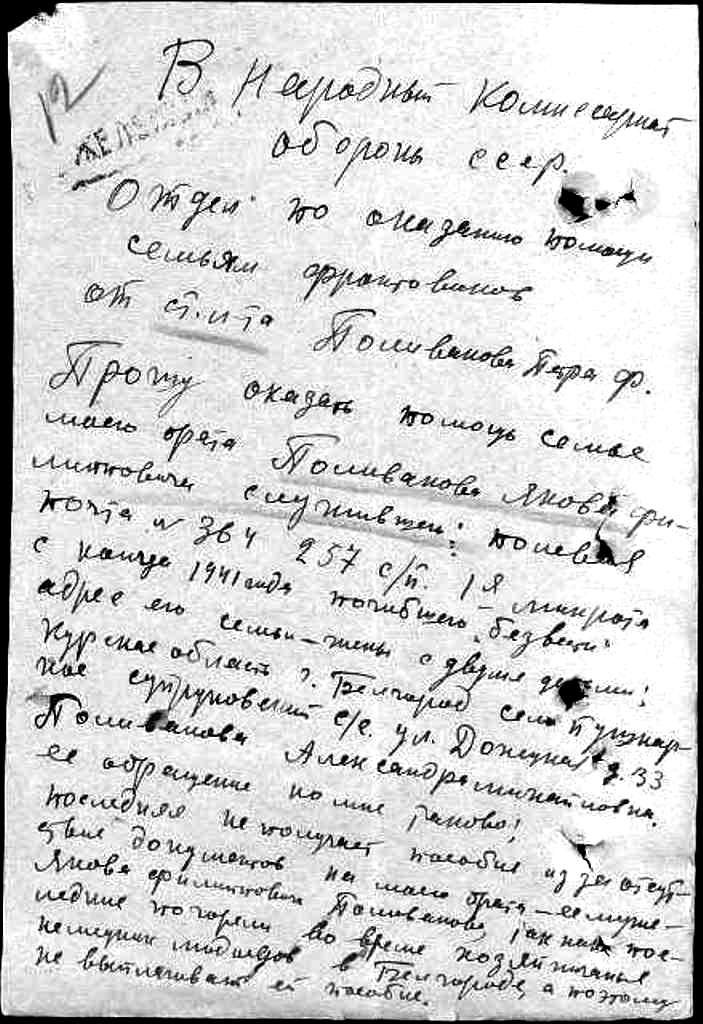 12
В Народный Комиссариат
обороны ссср.
Отдел по оказанию помощи
семьям фронтовиков
от ст. л-та Поливанова Петра Ф.
Прошу оказать помощь семье
моего брата Поливанова Якова Фи-
липповича служившего: полевая
почта № 364 257 с/п. 1я минрота
с конца 1941 года погибшего "безвести"
адрес его семьи - жены с двумя детьми:
Курская область г. Белгород село Пушкар-
ное супруновский с/с. ул. Донецкая д. 33
Поливанова Александра михайловна.
ее обращение ко мне таково:
последняя не получает пособие из за отсут-
ствие документов на моего брата - ее мужа -
Якова филипповича Поливанова, так как пос-
ледние погорели во время хозяйничанья
немецких людоедов в Белгороде, а поэтому
не выплачивают ей пособие.